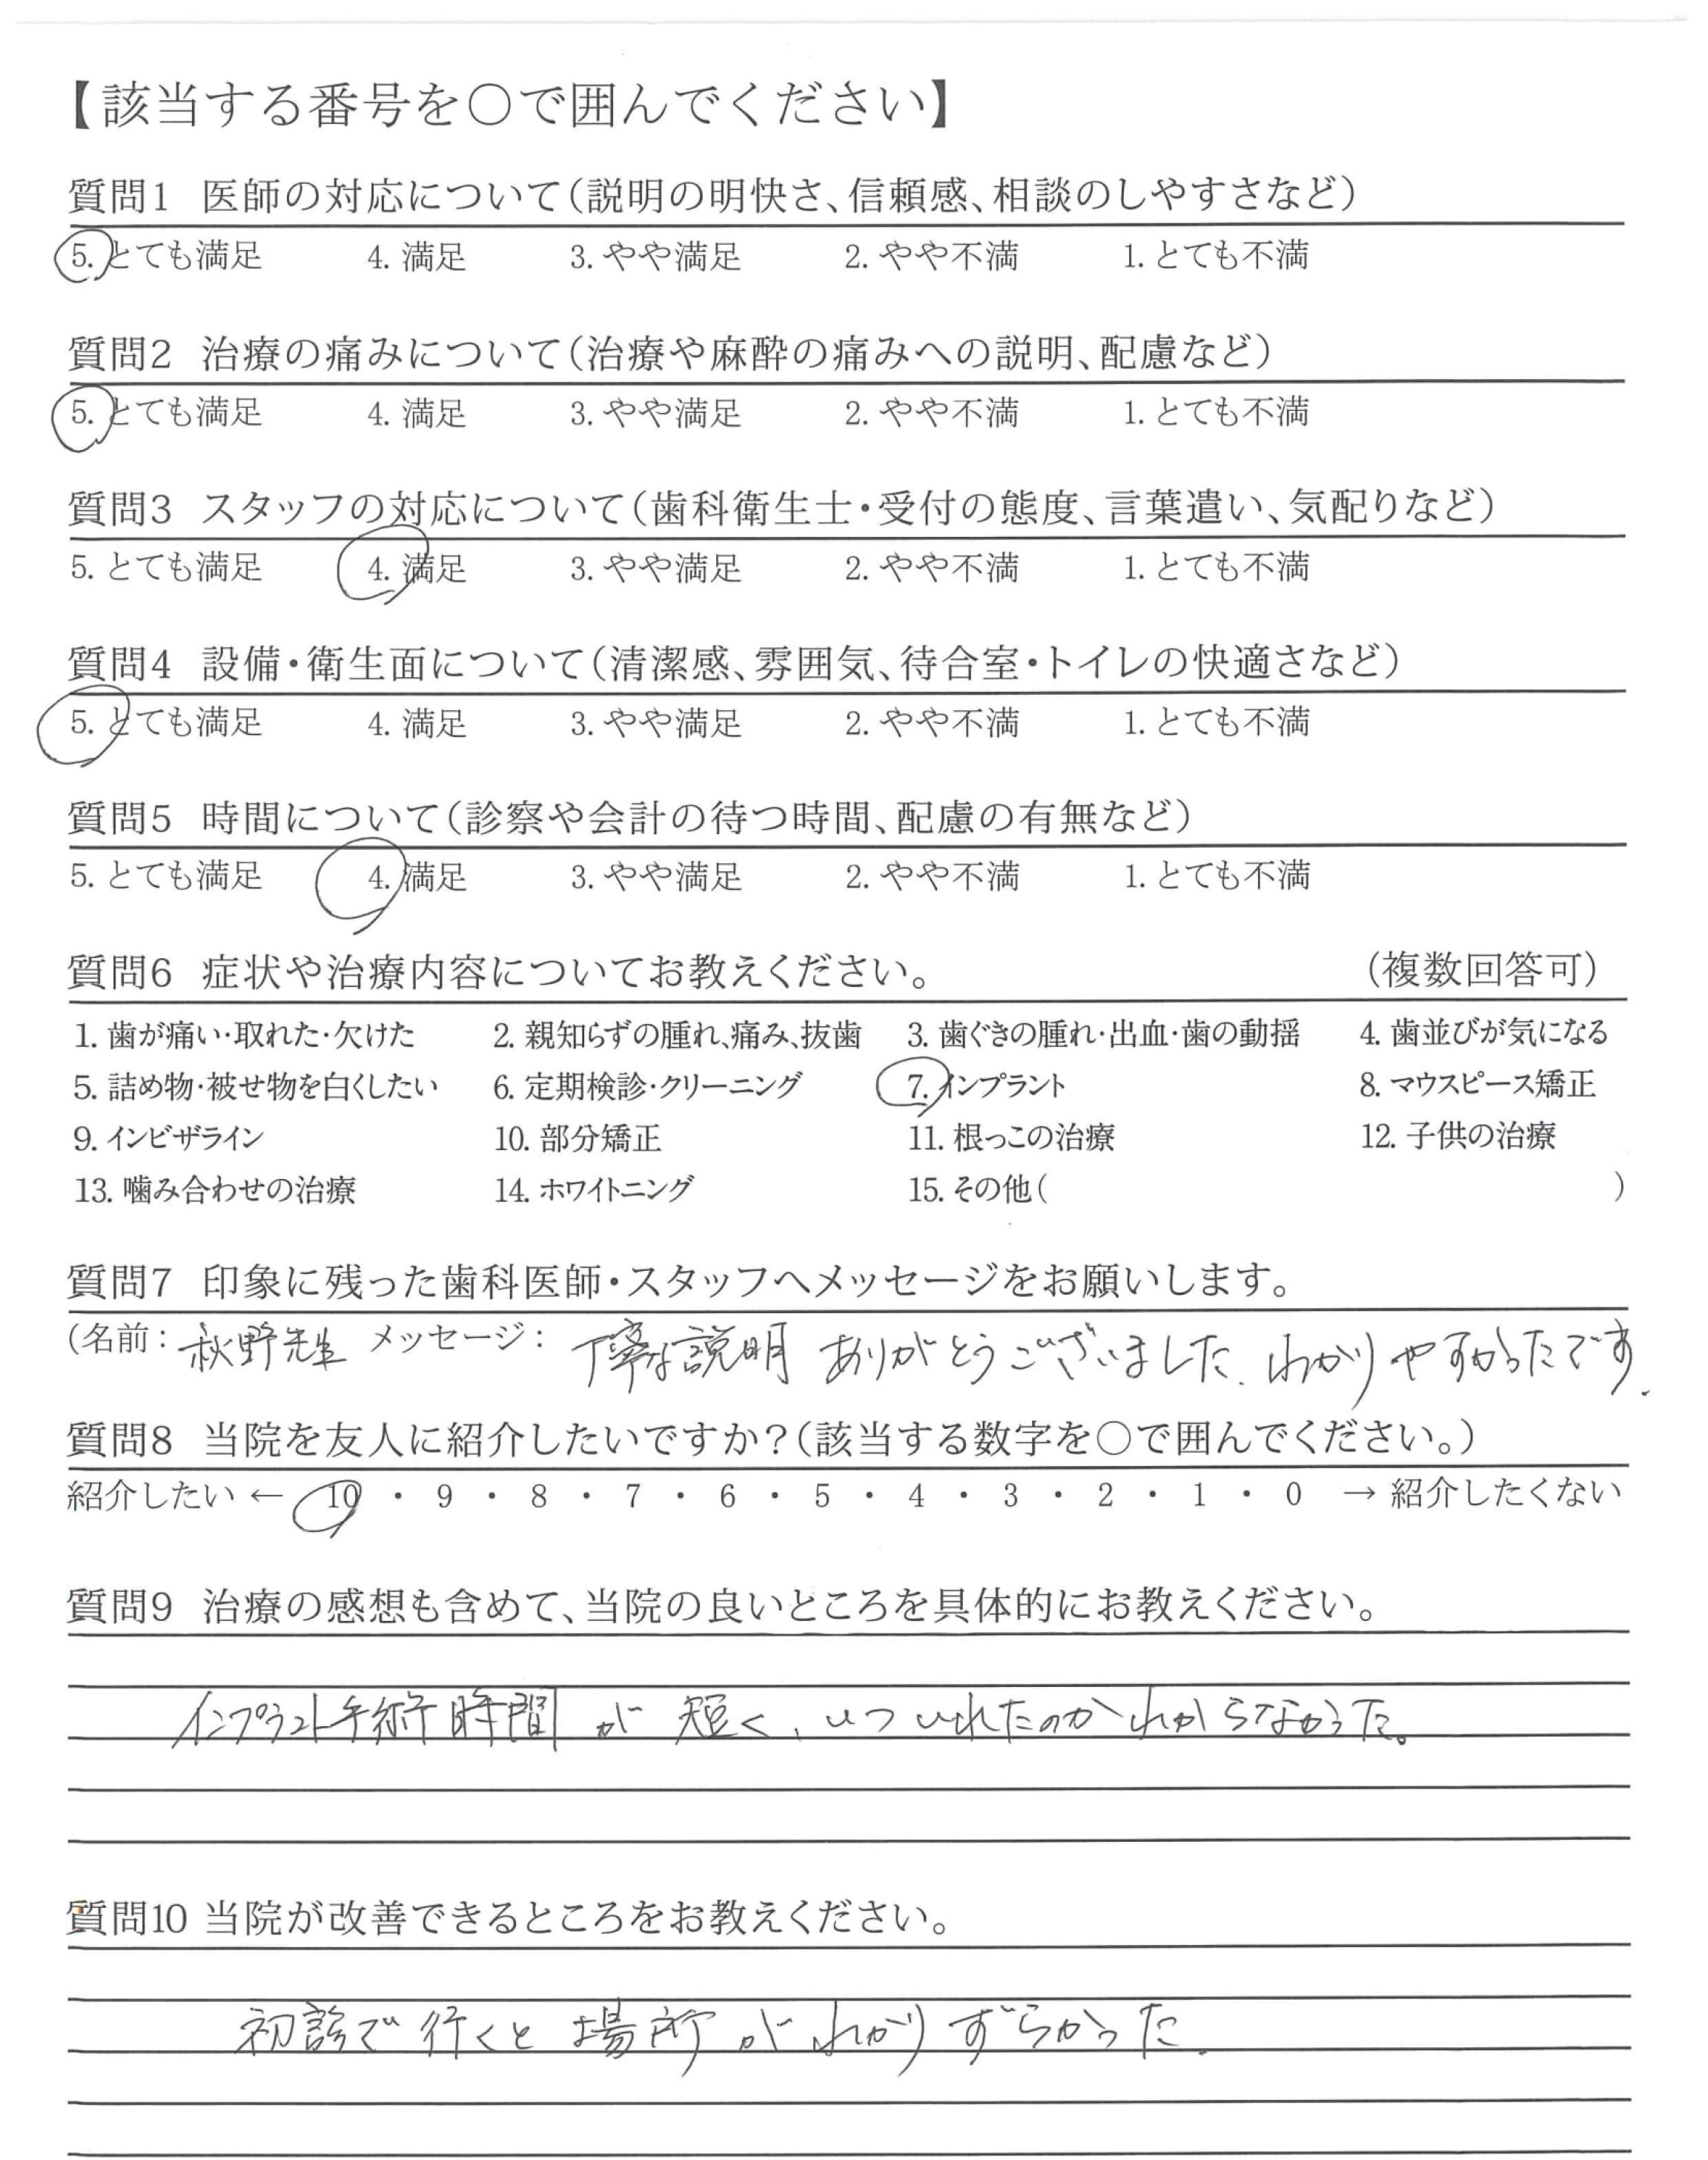 【該当する番号を〇で囲んでください】
質問1 医師の対応について(説明の明快さ、信頼感、相談のしやすさなど)
5. とても満足 4. 満足 3. やや満足 2. やや不満 1. とても不満
質問2 治療の痛みについて(治療や麻酔の痛みへの説明、配慮など)
5. とても満足 4. 満足 3. やや満足 2. やや不満 1. とても不満
質問3 スタッフの対応について(歯科衛生士・受付の態度、言葉遣い、気配りなど)
5. とても満足 4. 満足 3. やや満足 2. やや不満 1. とても不満
質問4 設備・衛生面について(清潔感、雰囲気、待合室・トイレの快適さなど)
5. とても満足 4. 満足 3. やや満足 2. やや不満 1. とても不満
質問5 時間について(診察や会計の待つ時間、配慮の有無など)
5. とても満足 4. 満足 3. やや満足 2. やや不満 1. とても不満
質問6 症状や治療内容についてお教えください。 (複数回答可)
1. 歯が痛い・取れた・欠けた 2. 親知らずの腫れ、痛み、抜歯 3. 歯ぐきの腫れ・出血・歯の動揺 4. 歯並びが気になる
5. 詰め物・被せ物を白くしたい 6. 定期検診・クリーニング 7. インプラント 8. マウスピース矯正
9. インビザライン 10. 部分矯正 11. 根っこの治療 12. 子供の治療
13. 噛み合わせの治療 14. ホワイトニング 15. その他( )
質問7 印象に残った歯科医師・スタッフへメッセージをお願いします。
(名前: 秋野先生 メッセージ: 丁寧な説明 ありがとうございました. わかりやすかったです.
質問8 当院を友人に紹介したいですか?(該当する数字を〇で囲んでください。)
紹介したい ← 10 ・ 9 ・ 8 ・ 7 ・ 6 ・ 5 ・ 4 ・ 3 ・ 2 ・ 1 ・ 0 → 紹介したくない
質問9 治療の感想も含めて、当院の良いところを具体的にお教えください。
インプラント手術時間が短く、いついれたのかわからなかった。
質問10 当院が改善できるところをお教えください。
初診で行くと場所がわかりずらかった.